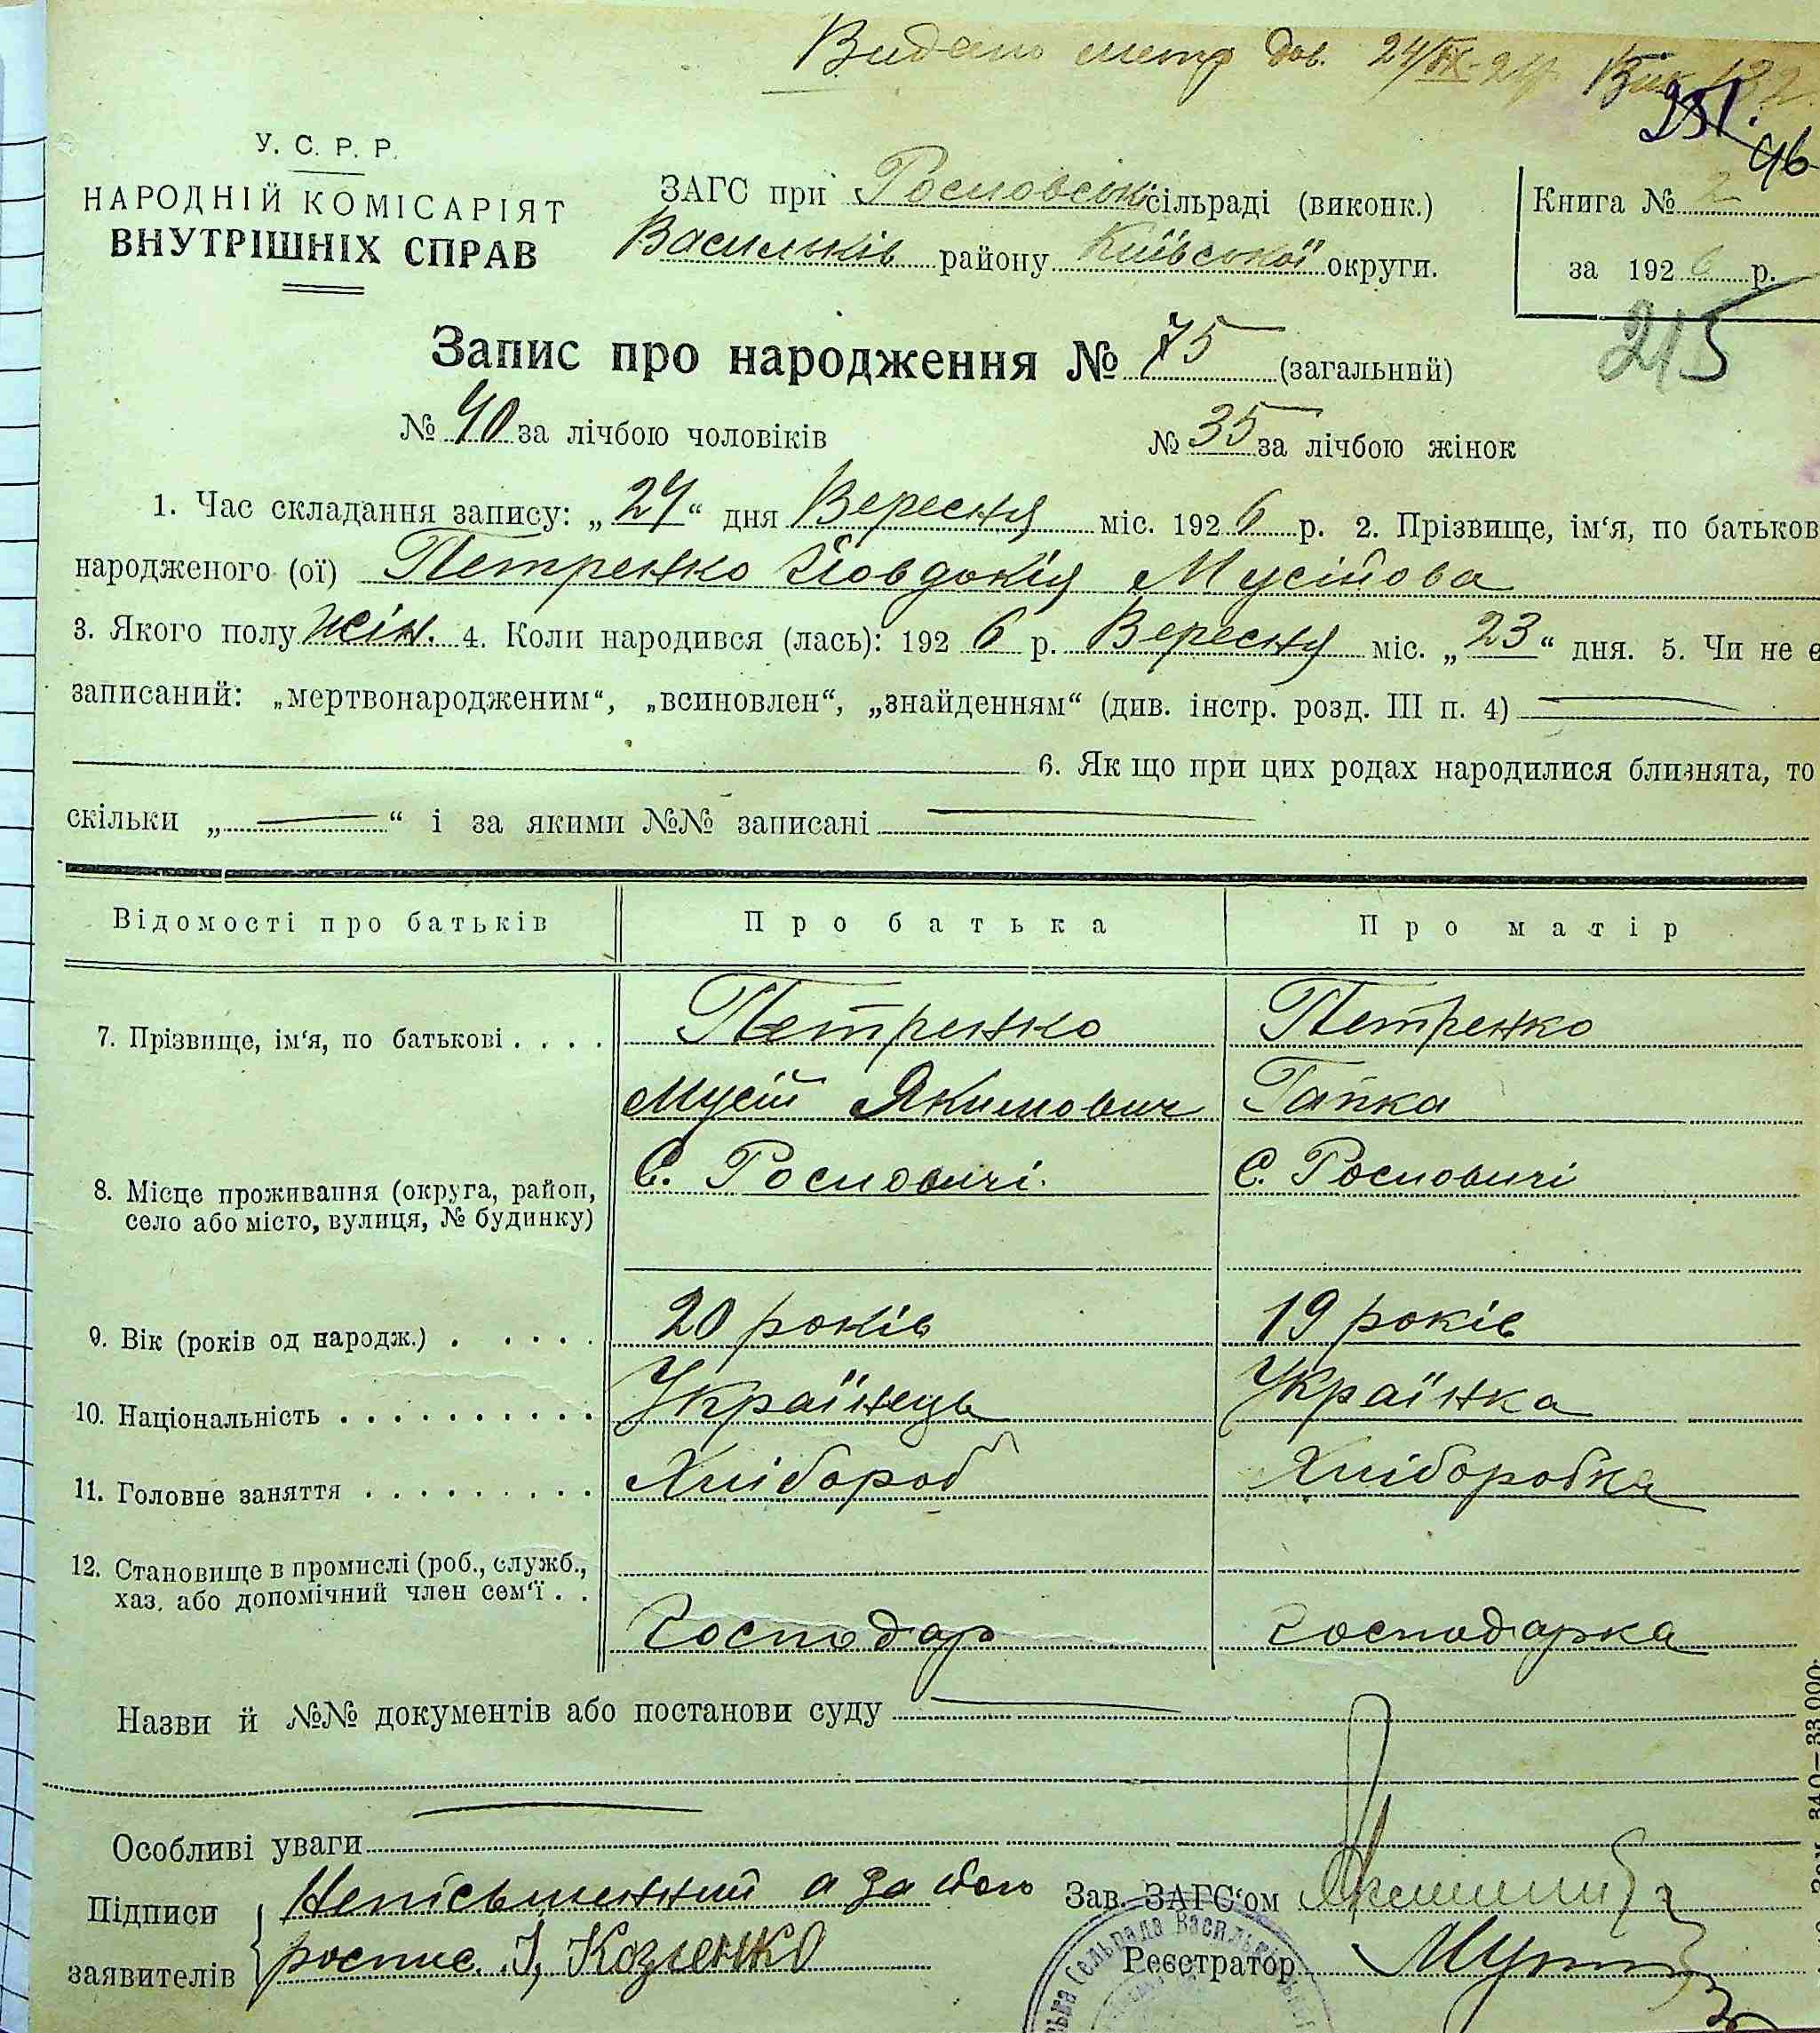 Видано метр дов. 24/IX-
46
У. С. Р. Р.
НАРОДНІЙ КОМІСАРІЯТ
ВНУТРІШНІХ СПРАВ
ЗАГС при Росновській сільраді (виконк.)
Васильків району Київської округи.
Книга № 2
за 1926 р.
215
Запис про народження № 75 (загальний)
№ 40 за лічбою чоловіків № 35 за лічбою жінок
1. Час складання запису: „24“ дня Вересня міс. 1926 р. 2. Прізвище, ім‘я, по батьков
народженого (ої) Петренко Йовдокія Мусійова
3. Якого полу жін. 4. Коли народився (лась): 1926 р. Вересня міс. „23“ дня. 5. Чи не є
записаний: „мертвонародженим“, „всиновлен“, „знайденням“ (див. інстр. розд. III п. 4)
6. Як що при цих родах народилися близнята, то
скільки „ “ і за якими №№ записані
Відомості про батьків Про батька Про матір
7. Прізвище, ім‘я, по батькові . . . . Петренко Петренко
Мусій Якимович Гапка
8. Місце проживання (округа, район, С. Росновичі. С. Росновичі
село або місто, вулиця, № будинку)
9. Вік (років од народж.) . . . . . 20 років 19 років
10. Національність . . . . . . . . . . Українець Українка
11. Головне заняття . . . . . . . . . Хлібороб Хліборобка
12. Становище в промислі (роб., служб.,
хаз. або допомічний член сем‘ї . .
Господар Господарка
Назви й №№ документів або постанови суду
Особливі уваги
Підписи Неписьменний а за його Зав. ЗАГС‘ом
заявителів роспис. І, Козленко Реєстратор